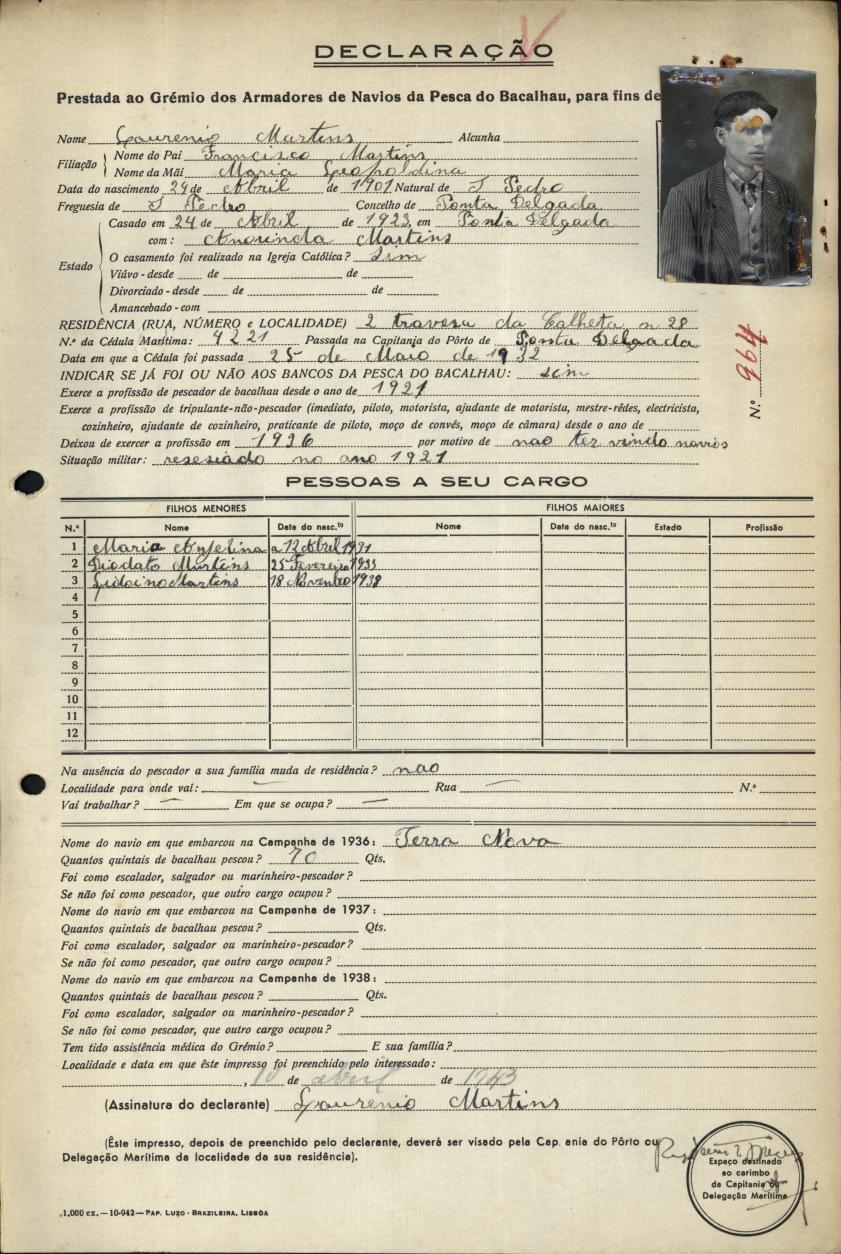 DECLARAÇÃO
Prestada ao Grémio dos Armadores de Navios da Pesca do Bacalhau, para fins de
Nome Laurenio Martins Alcunha
Filiação Nome do Pai Francisco Martins
Nome da Mãi Maria Leopoldina
Data do nascimento 29 de Abril de 1901 Natural de S Pedro
Freguesia de S Pedro Concelho de Ponta Delgada
Estado Casado em 24 de Abril de 1923 em Ponta Delgada
com: Martins
O casamento foi realizado na Igreja Católica? sim
Viúvo - desde de de
Divorciado - desde de de
Amancebado - com
RESIDÊNCIA (RUA, NÚMERO e LOCALIDADE) 2 travesa da Calheta n 28
N.º da Cédula Marítima: 4221 Passada na Capitania do Pôrto de Ponta Delgada
Data em que a Cédula foi passada 25 de Maio de 1932
INDICAR SE JÁ FOI OU NÃO AOS BANCOS DA PESCA DO BACALHAU: sim
Exerce a profissão de pescador de bacalhau desde o ano de 1921
Exerce a profissão de tripulante-não-pescador (imediato, piloto, motorista, ajudante de motorista, mestre-rêdes, electricista,
cozinheiro, ajudante de cozinheiro, praticante de piloto, moço de convés, moço de câmara) desde o ano de
Deixou de exercer a profissão em 1936 por motivo de nao ter vindo navios
Situação militar: resesiado no ano 1921
N.º 994
PESSOAS A SEU CARGO
FILHOS MENORES FILHOS MAIORES
N.º Nome Data do nasc.to Nome Data do nasc.to Estado Profissão
1 Maria Anjelina a 12 Abril 1931
2 Diodato Martins 25 Fevereiro 1933
3 Martins 18 Novenbro 1938
4
5
6
7
8
9
10
11
12
Na ausência do pescador a sua família muda de residência? nao
Localidade para onde vai: — Rua — N.º
Vai trabalhar? — Em que se ocupa? —
Nome do navio em que embarcou na Campanha de 1936: Terra Nova
Quantos quintais de bacalhau pescou? 70 Qts.
Foi como escalador, salgador ou marinheiro-pescador?
Se não foi como pescador, que outro cargo ocupou?
Nome do navio em que embarcou na Campanha de 1937:
Quantos quintais de bacalhau pescou? Qts.
Foi como escalador, salgador ou marinheiro-pescador?
Se não foi como pescador, que outro cargo ocupou?
Nome do navio em que embarcou na Campanha de 1938:
Quantos quintais de bacalhau pescou? Qts.
Foi como escalador, salgador ou marinheiro-pescador?
Se não foi como pescador, que outro cargo ocupou?
Tem tido assistência médica do Grémio? E sua família?
Localidade e data em que êste impresso foi preenchido pelo interessado:
, 10 de abril de 1943
(Assinatura do declarante) Laurenio Martins
(Êste impresso, depois de preenchido pelo declarante, deverá ser visado pela Cap. ania do Pôrto ou
Delegação Marítima da localidade da sua residência).
Espaço destinado
ao carimbo
da Capitania ou
Delegação Marítima
1,000 ex. — 10-942 — PAP. LUZO-BRAZILEIRA, LISBÔA